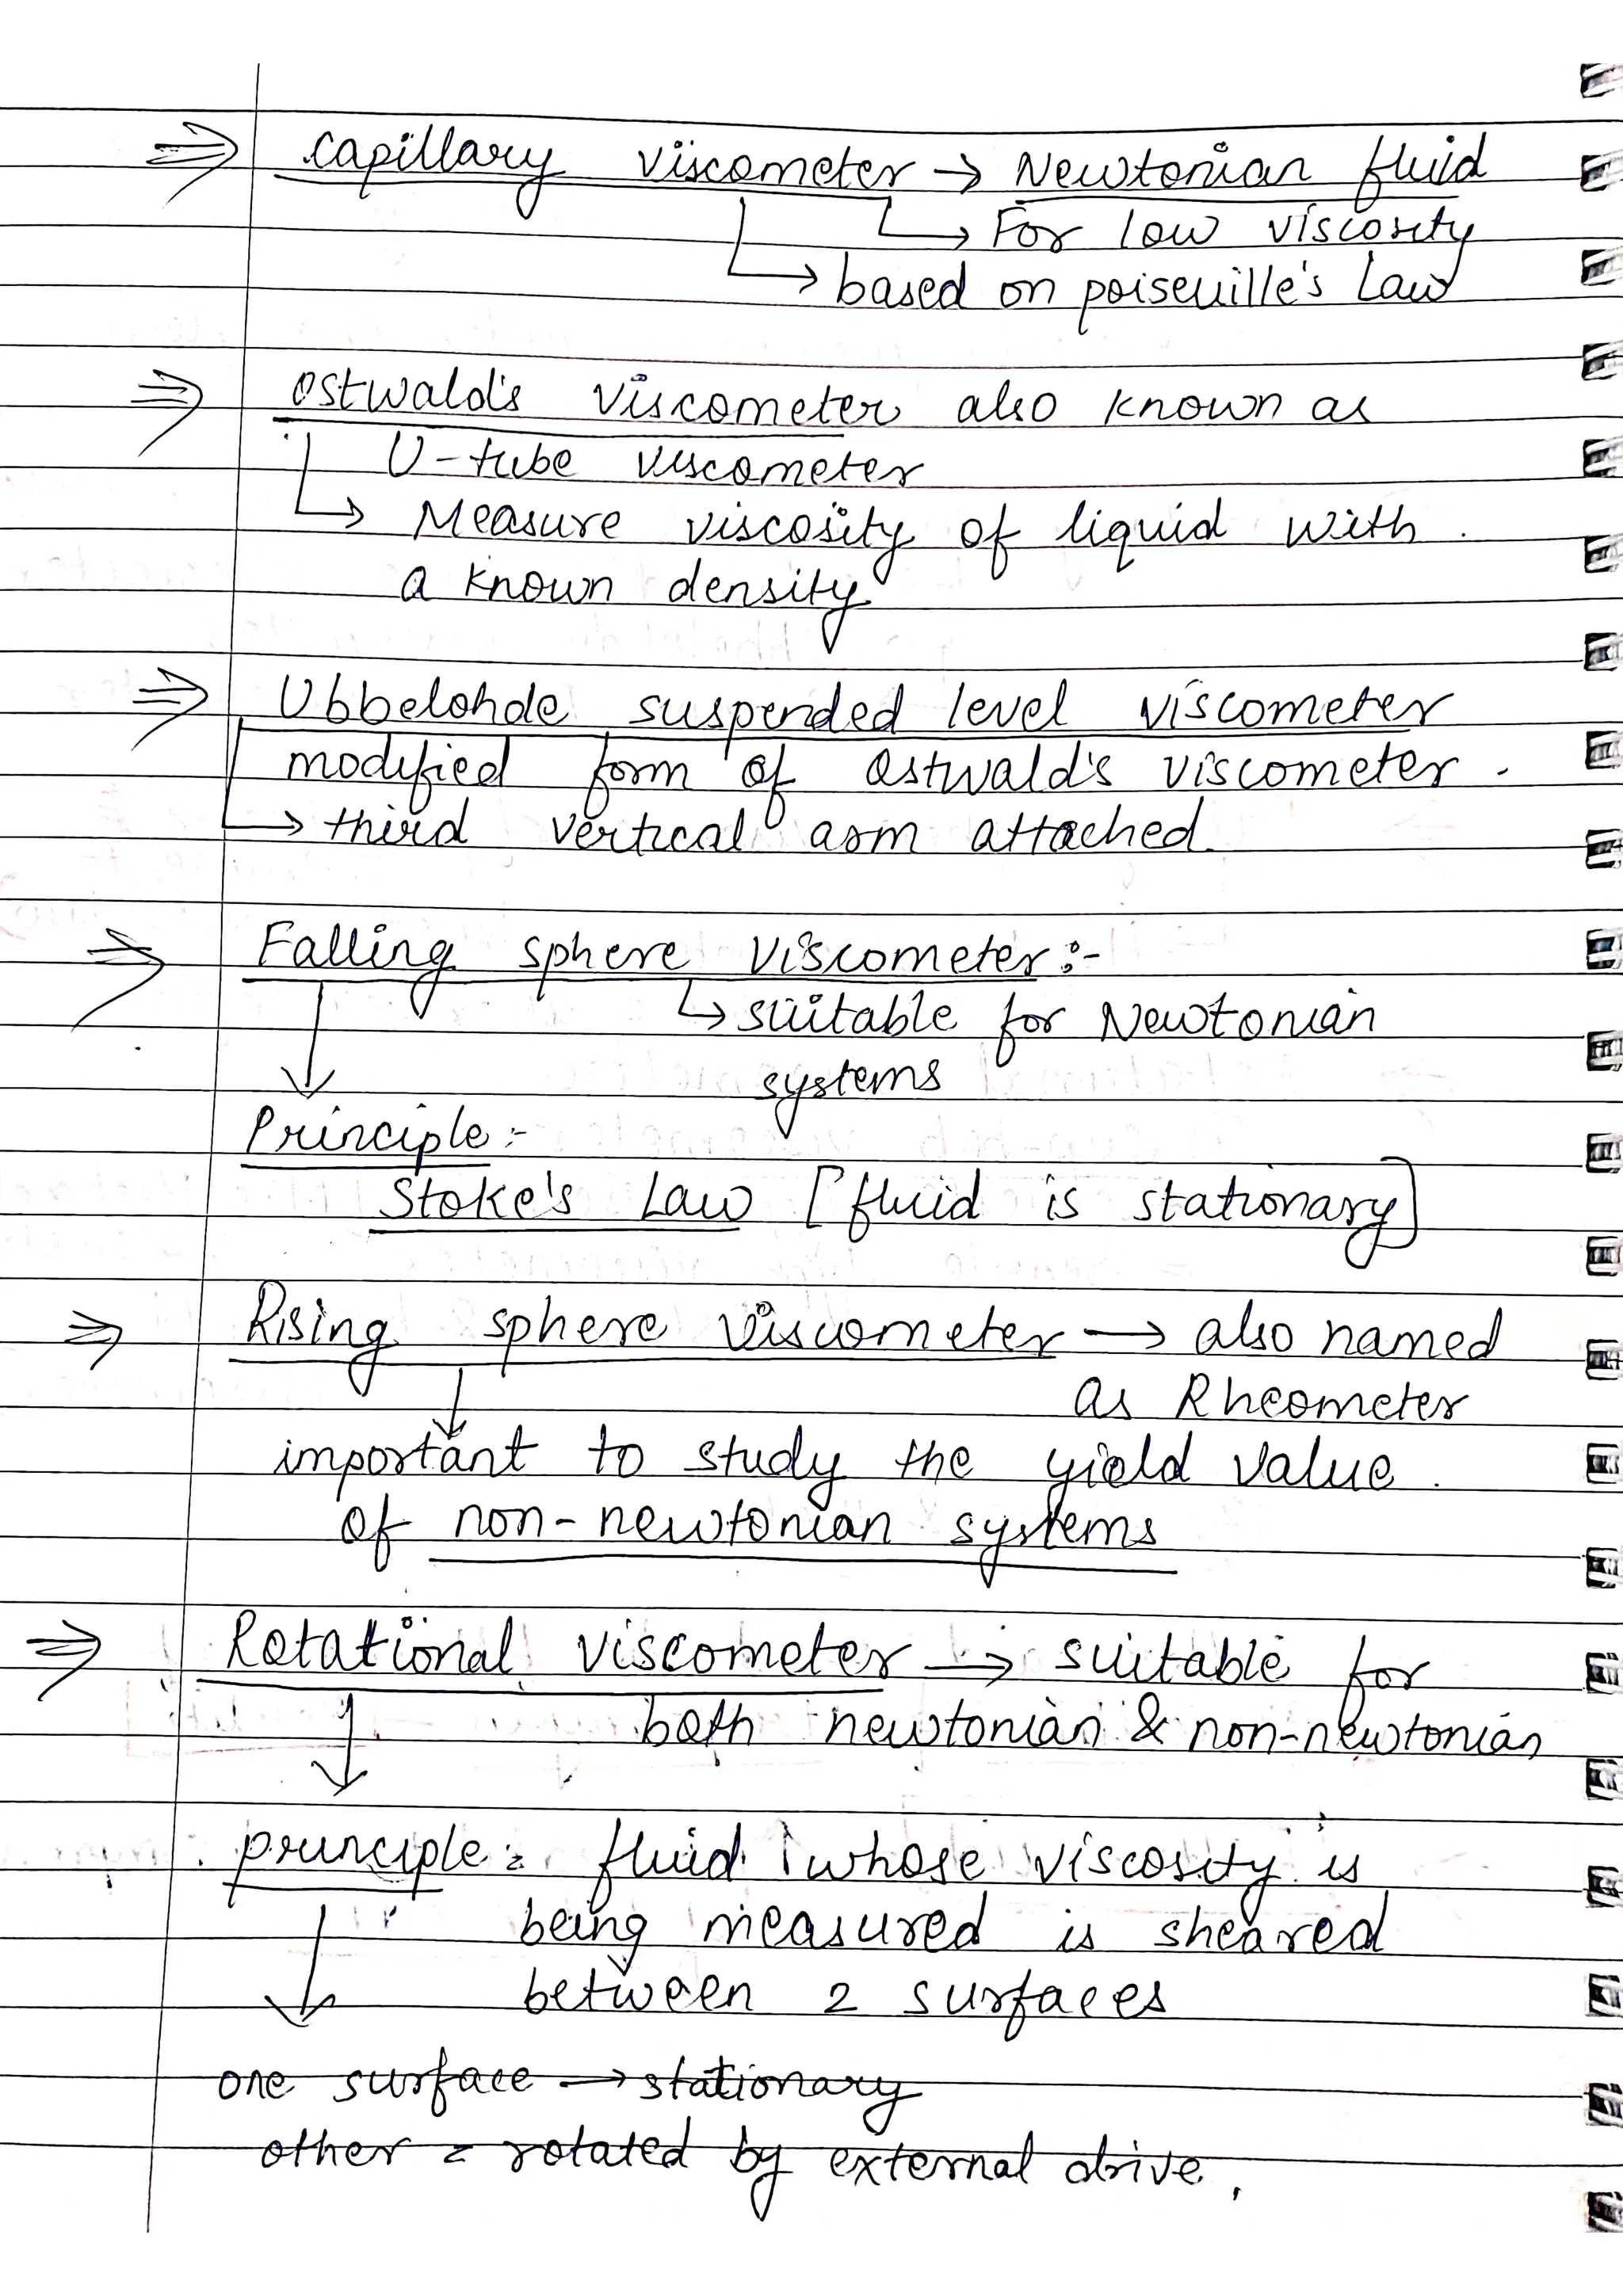 ⇒ capillary viscometer → Newtonian fluid
↳ For low viscosity
↳ based on poiseuille's Law
⇒ ostwald's viscometer also known as
U-tube viscometer
↳ Measure viscosity of liquid with
a known density
⇒ Ubbelohde suspended level viscometer
modified form of Ostwald's viscometer.
↳ third vertical arm attached.
⇒ Falling sphere viscometer :-
↳ suitable for Newtonian
systems
↓
Principle :-
Stoke's Law [fluid is stationary]
⇒ Rising sphere viscometer → also named
as Rheometer
↓
important to study the yield value
of non-newtonian systems
⇒ Rotational viscometer → suitable for
both newtonian & non-newtonian
↓
principle = fluid whose viscosity is
being measured is sheared
between 2 surfaces
↓
one surface → stationary
other = rotated by external drive.